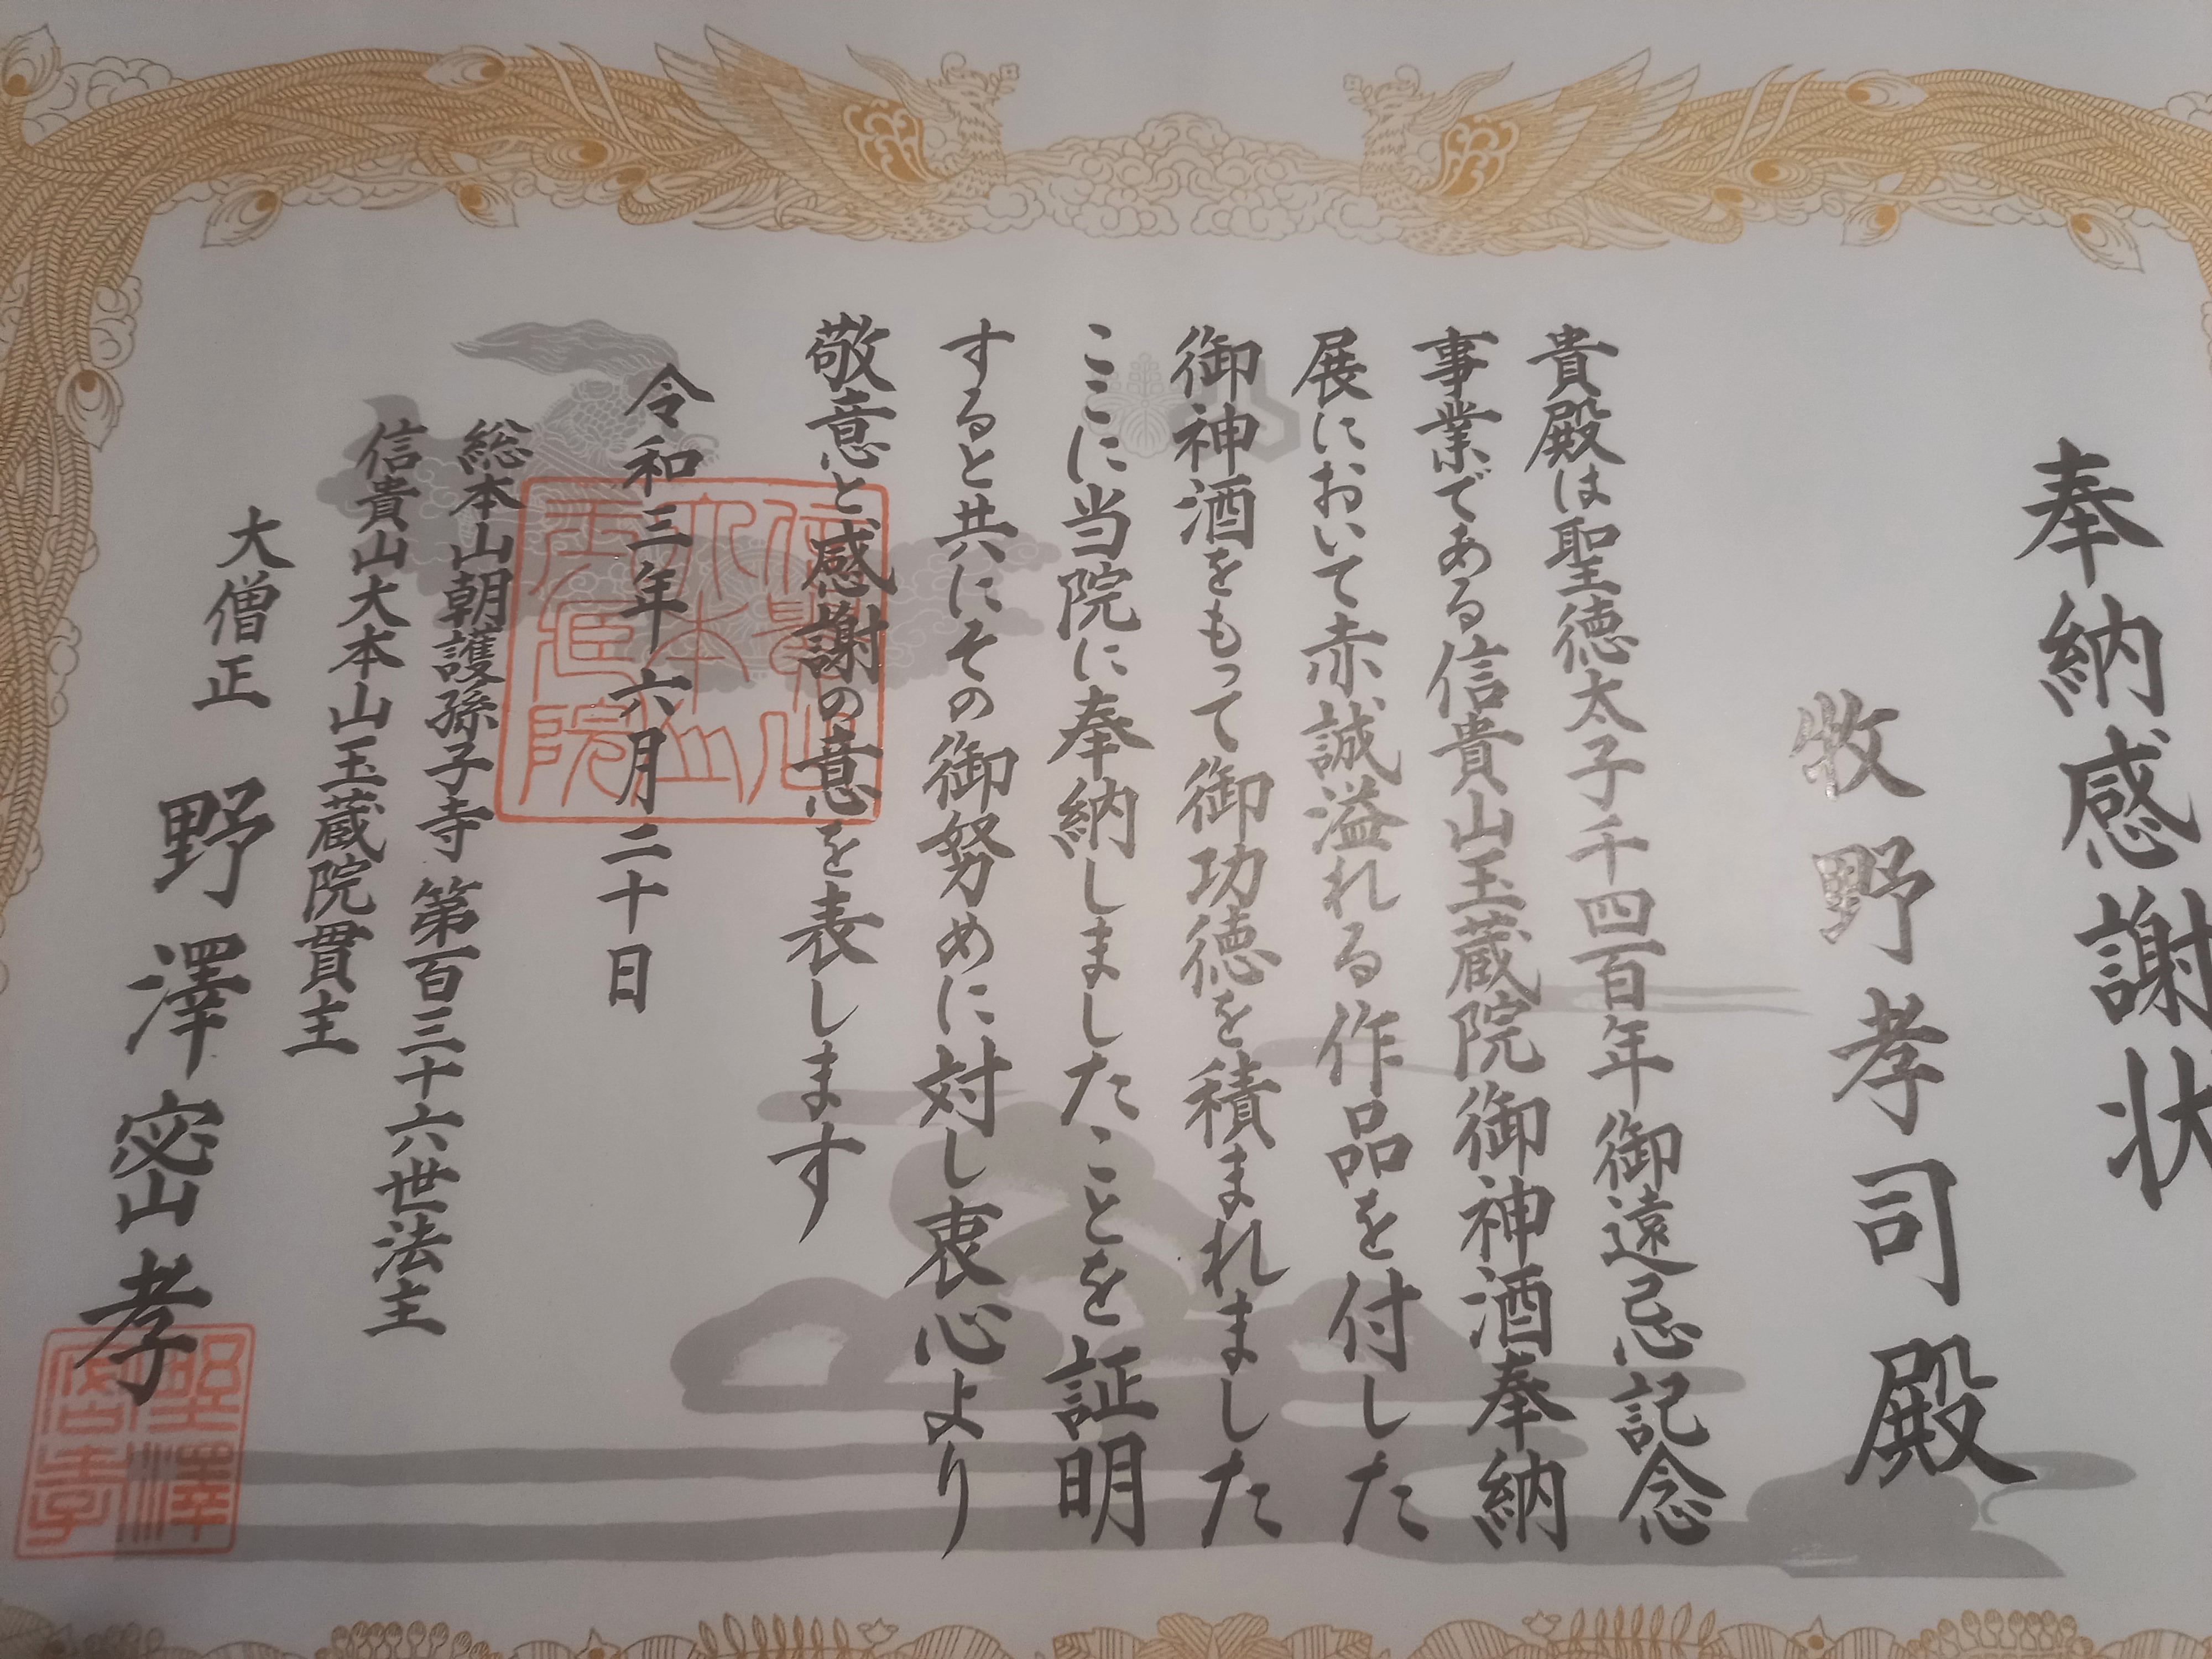 奉納感謝状
牧野孝司殿
貴殿は聖徳太子千四百年御遠忌記念
事業である信貴山玉蔵院御神酒奉納
展において赤誠溢れる作品を付した
御神酒をもって御功徳を積まれました
ここに当院に奉納しましたことを証明
すると共にその御努めに対し衷心より
敬意と感謝の意を表します
令和三年六月二十日
総本山朝護孫子寺 第百三十六世法主
信貴山大本山玉蔵院貫主
大僧正 野澤密孝
信貴山
大本山
玉蔵院
野澤
密孝